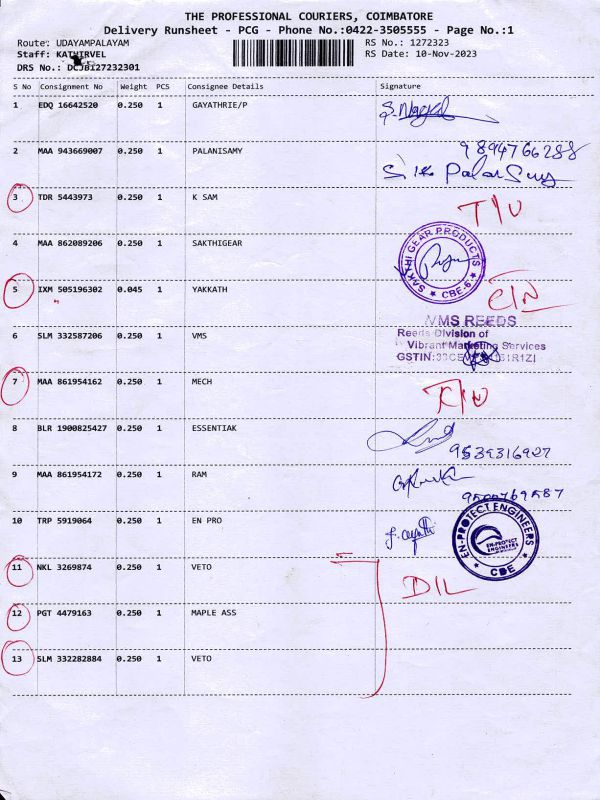 THE PROFESSIONAL COURIERS, COIMBATORE
Delivery Runsheet - PCG - Phone No.:0422-3505555 - Page No.:1
Route: UDAYAMPALAYAM RS No.: 1272323
Staff: KATHIRVEL RS Date: 10-Nov-2023
DRS No.: DCJBI27232301
S No Consignment No Weight PCS Consignee Details Signature
1 EDQ 16642520 0.250 1 GAYATHRIE/P
9894766288
2 MAA 943669007 0.250 1 PALANISAMY
3 TDR 5443973 0.250 1 K SAM
4 MAA 862089206 0.250 1 SAKTHIGEAR SAKTHI GEAR PRODUCTS CBE-6
5 IXM 505196302 0.045 1 YAKKATH
VMS REEDS
6 SLM 332587206 0.250 1 VMS Reeds Division of
Vibrant Marketing Services
GSTIN:
7 MAA 861954162 0.250 1 MECH
8 BLR 1900825427 0.250 1 ESSENTIAK
9539316927
9 MAA 861954172 0.250 1 RAM
10 TRP 5919064 0.250 1 EN PRO EN-PROTECT ENGINEERS CBE
EN-PROTECT ENGINEERS
11 NKL 3269874 0.250 1 VETO D/L
12 PGT 4479163 0.250 1 MAPLE ASS
13 SLM 332282884 0.250 1 VETO